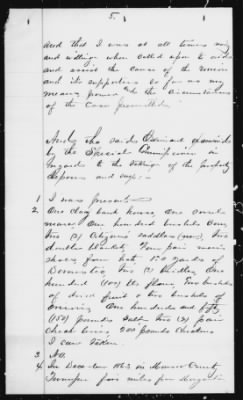 5.
and that I was at all times ready
and willing when called upon to aid
and assist the cause of the union
and its supporters so far as my
means power and the circumstances
of the case permitted.
And the said Claimant
to the Special Commissioner in
regards to the taking of the property
deposes and says:
1 I was present
2 One clay bank horse, One small
mare One hundred bushels Corn
Two (2) saddles Two
double blankets Four pair
shoes from 150 yards of
Domestic Two (2) One
hundred (100) lbs flour, Two bushels
of dried fruit & two bushels of
One hundred and fifty
(150) pounds Salt Two (2) pair
200 pounds Chickens
I saw taken.
3 No.
4 In December 1863 in Monroe County
Tennessee four miles from